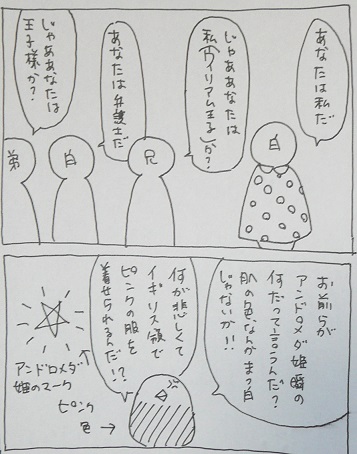 あなたは私だ
じゃああなたは
私(ウイリアム王子)か?
あなたは弁護士だ
じゃああなたは
王子様か?
白
兄
自
弟
お前らが
アンドロメダ姫瞬の
何だって言うんだ?
肌の色なんかまっ白
じゃないか!!
何が悲しくて
イギリス領で
ピンクの服を
着せられるんだ!?
アンドロメダ
姫のマーク
ピンク
色→